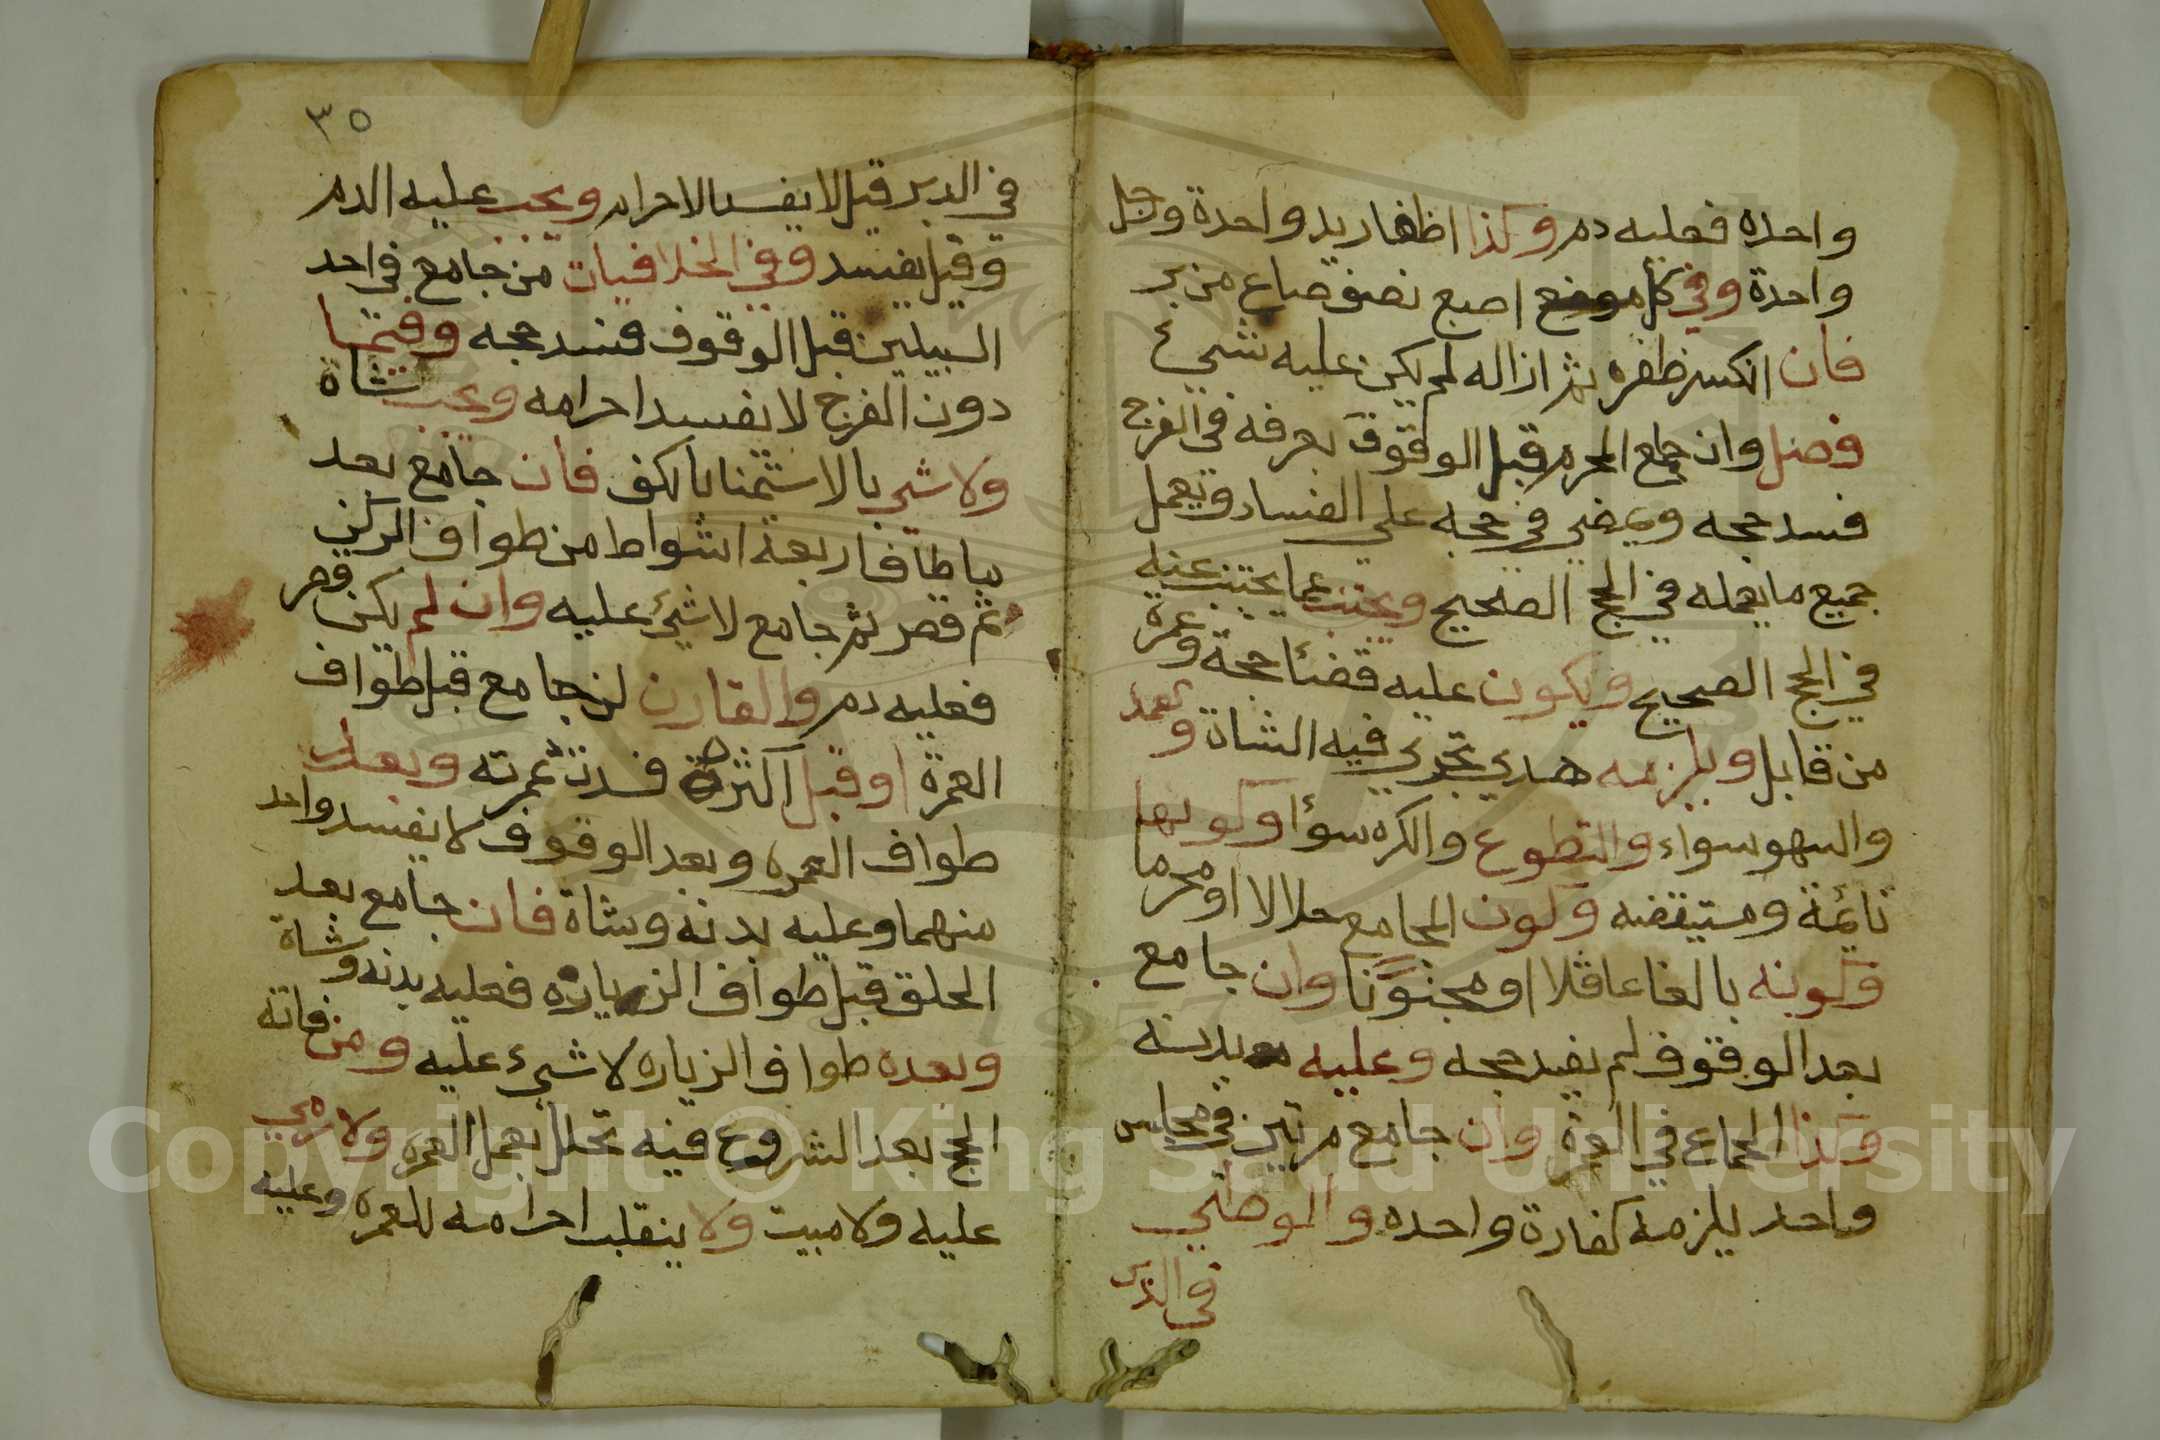 واحده فعليه دم وكذا اظفار يد واحدة ورجل
واحدة وفي كل موضع اصبع نصف صاع من بر
فان انكسر ظفره ثم ازاله لم يكن عليه شيء
فصل وان جامع المحرم قبل الوقوف بعرفه في الفرج
فسد حجه ويمضي في حجه علي الفساد ويعمل
جميع ما يعمله في الحج الصحيح ويجتنب عما يجتنب عنه
في الحج الصحيح ويكون عليه قضئا حجة وعمرة
من قابل ويلزمه هدي تجزي فيه الشاة وتعمد
والسهو سواء والتطوع والكره سوؤا وكونها
نائمة ومستيقضه وكون المجامع حلالا او محرما
وكونه بالغا عاقلا او مجنونا وان جامع
بعد الوقوف لم يفسد حجه وعليه بدنه
وكذا الجماع في العمرة وان جامع مرتين في مجلس
واحد يلزمه كفارة واحده والوطئي
في الدبر
٣٥
في الدبر قيل لا يفسد الاحرام ويجب عليه الدم
وقيل يفسد وفي الخلافيات من جامع في احد
السبيلين قبل الوقوف فسد حجه وفيما
دون الفرج لا يفسد احرامه ويجب شاة
ولا شي بالاستمنا بالكف فان جامع بعد
ما طاف اربعة اشواط من طواف الركن
ثم قصر ثم جامع لا شيء عليه وان لم يكن قصر
فعليه دم والقارن جامع قبل طواف
العمرة او قبل اكثره فسدت عمرته وبعد
طواف العمره وبعد الوقوف لا يفسد واحد
منهما وعليه بدنه وشاة فان جامع بعد
الحلق قبل طواف الزياره فعليه بدنه وشاة
وبعده طواف الزياره لا شيء عليه ومن فاته
الحج بعد الشروع فيه تحلل بعمل العمره ولا رمي
عليه ولا مبيت ولا ينقلب احرامه للعمره وعليه
Copyright © King Saud University
1957